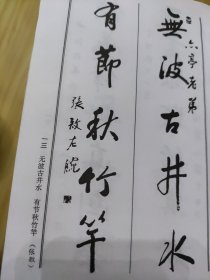 六亭老弟
無波古井水
有節秋竹竿
張敔左腕
一三 无波古井水 有节秋竹竿 (张敔)